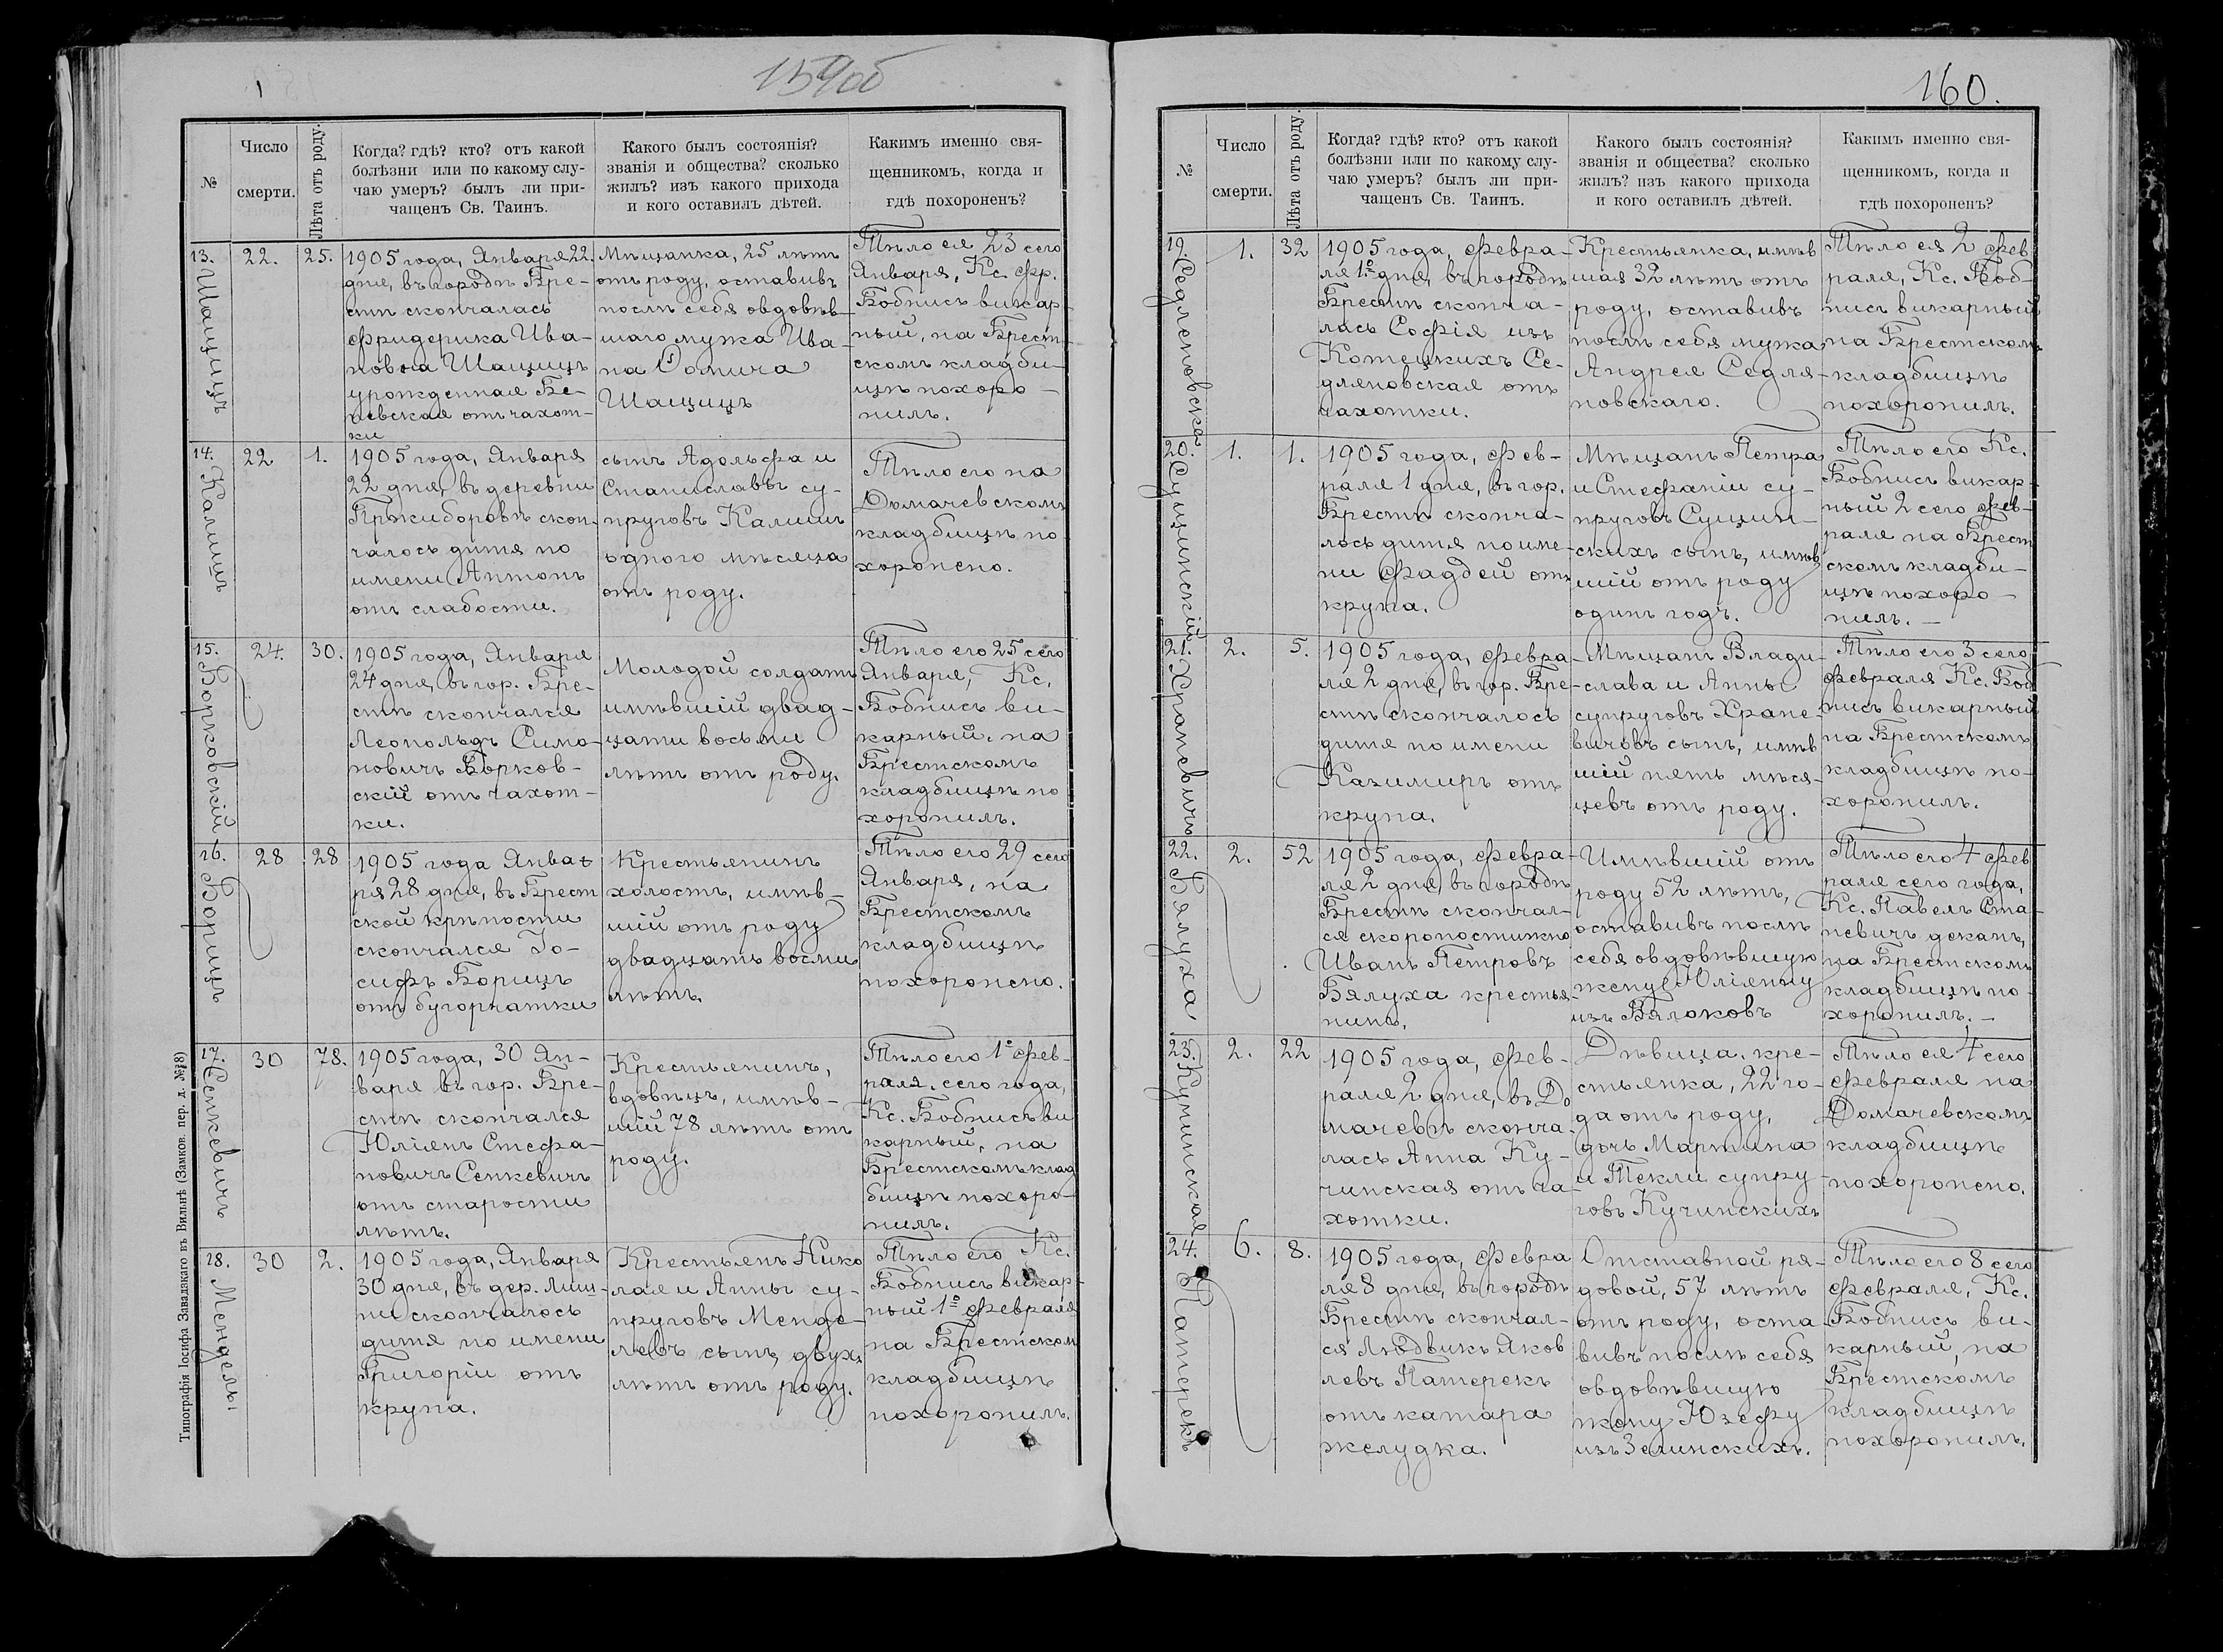 159об
№
Число
смерти.
Лѣта отъ роду.
Когда? гдѣ? кто? отъ какой
болѣзни или по какому слу-
чаю умеръ? былъ ли при-
чащенъ Св. Таинъ.
Какого былъ состоянія?
званія и общества? сколько
жилъ? изъ какого прихода
и кого оставилъ дѣтей.
Какимъ именно свя-
щенникомъ, когда и
гдѣ похороненъ?
13.
Шащицъ
22.
25.
1905 года, Января 22.
дня, въ городѣ Бре-
стѣ скончалась
Фридерика Ива-
нова Шащицъ
урожденная Бе-
невская отъ чахот-
ки
Мѣщанка, 25 лѣтъ
отъ роду, оставивъ
послѣ себя овдовѣв-
шаго мужа Ива-
на Домича
Шащицъ
Тѣло ея 23 сего
Января, Кс. Фр.
Бобнисъ викар-
ный, на Брест-
скомъ кладби-
щѣ похоро-
нилъ.
14.
Калишъ
22
1.
1905 года, Января
22 дня, въ деревни
Пржиборовѣ скон-
чалось дитя по
имени Антонъ
отъ слабости.
сынъ Адольфа и
Станиславы су-
пруговъ Калишъ
одного мѣсяца
отъ роду.
Тѣло его на
Домачевскомъ
кладбищѣ по
хоронено.
15.
Борковскій
24.
30.
1905 года, Января
24 дня, въ гор. Бре-
стѣ скончался
Леопольдъ Симо-
новичъ Борков-
скій отъ чахот-
ки.
Молодой солдатъ
имѣвшій двад-
цати восьми
лѣтъ отъ роду.
Тѣло его 25 сего
Января, Кс.
Бобнисъ ви-
карный, на
Брестскомъ
кладбищѣ по
хоронилъ.
16.
Борицъ
28
28
1905 года Янва
ря 28 дня, въ Брест
ской крѣпости
скончался Іо-
сифъ Борицъ
отъ бугорчатки
Крестьянинъ
холостъ, имѣв-
шій отъ роду
двадцать восми
лѣтъ.
Тѣло его 29 сего
Января, на
Брестскомъ
кладбищѣ
похоронено.
17.
Сенкевичъ
30
78.
1905 года, 30 Ян-
варя въ гор. Бре-
стѣ скончался
Юліянъ Стефа-
новичъ Сенкевичъ
отъ старости
лѣтъ.
Крестьянинъ,
вдовецъ, имѣв-
шій 78 лѣтъ отъ
роду.
Тѣло его 1º фев-
раля, сего года,
Кс. Бобнисъ ви
карный, на
Брестскомъ клад
бищѣ похоро-
нилъ.
18.
Менделы
30
2.
1905 года, Января
30 дня, въ дер. Лищ-
ни скончалось
дитя по имени
Григорій отъ
крупа.
Крестьянъ Нико
лая и Анны су-
пруговъ Менде-
левъ сынъ, двухъ
лѣтъ отъ роду.
Тѣло его Кс.
Бобнисъ викар-
ный 1º февраля
на Брестском
кладбищѣ
похоронилъ.
Типографія Іосифа Завадзкаго въ Вильнѣ (Замков. пер. д. №8)
160.
№
Число
смерти.
Лѣта отъ роду.
Когда? гдѣ? кто? отъ какой
болѣзни или по какому слу-
чаю умеръ? былъ ли при-
чащенъ Св. Таинъ.
Какого былъ состоянія?
званія и общества? сколько
жилъ? изъ какого прихода
и кого оставилъ дѣтей.
Какимъ именно свя-
щенникомъ, когда и
гдѣ похороненъ?
19.
Седляновская
1.
32
1905 года, Февра-
ля 1º дня, въ городѣ
Брестѣ сконча-
лась Софія изъ
Котецкихъ Се-
дляновская отъ
чахотки.
Крестьянка, имѣв
шая 32 лѣтъ отъ
роду, оставивъ
послѣ себя мужа
Андрея Седля-
новскаго.
Тѣло ея 2 Фев
раля, Кс. Боб-
нисъ викарный
на Брестскомъ
кладбищѣ
похоронилъ.
20.
Сущинскій
1.
1.
1905 года, Фев-
раля 1 дня, въ гор.
Брестѣ сконча-
лось дитя по име-
ни Фаддей отъ
крупа.
Мѣщанъ Петра
и Стефаніи су-
пруговъ Сущин-
скихъ сынъ, имѣв
шій отъ роду
одинъ годъ.
Тѣло его Кс.
Бобнисъ викар-
ный 2 сего Фев-
раля на Брест
скомъ кладби-
щѣ похоро-
нилъ. —
21.
Храневичъ
2.
5.
1905 года, Февра-
ля 2 дня, въ гор. Бре-
стѣ скончалось
дитя по имени
Казимиръ отъ
крупа.
Мѣщанъ Влади-
слава и Анны
супруговъ Хране-
вичовъ сынъ, имѣв
шій пять мѣся-
цевъ отъ роду.
Тѣло его 3 сего
Февраля Кс. Боб
нисъ викарный
на Брестскомъ
кладбищѣ по-
хоронилъ.
22.
Бялуха
2.
52
1905 года, Февра-
ля 2 дня, въ городѣ
Брестѣ скончал-
ся скоропостижно
Иванъ Петровъ
Бялуха крестья-
нинъ.
Имѣвшій отъ
роду 52 лѣтъ,
оставивъ послѣ
себя овдовѣвшую
жену Юліянну
изъ Бялоковъ
Тѣло его 4 Фев
раля сего года,
Кс. Павелъ Ста-
невичъ деканъ,
на Брестскомъ
кладбищѣ по-
хоронилъ. —
23.
Кучинская
2.
22
1905 года, Фев-
раля 2 дня, въ До
мачевѣ сконча-
лась Анна Ку-
чинская отъ ча-
хотки.
Дѣвица, кре-
стьянка, 22 го-
да отъ роду,
дочь Мартина
и Текли супру-
говъ Кучинскихъ
Тѣло ея 4 сего
Февраля на
Домачевскомъ
кладбищѣ
похоронено.
24.
Патерекъ
6.
8.
1905 года, Февра
ля 8 дня, въ городѣ
Брестѣ скончал-
ся Людвикъ Яков
левъ Патерекъ
отъ катара
желудка.
Отставной ря-
довой, 57 лѣтъ
отъ роду, оста
вивъ послѣ себя
овдовѣвшую
жену Юзефу
изъ Зелинскихъ.
Тѣло его 8 сего
Февраля, Кс.
Бобнисъ ви-
карный, на
Брестскомъ
кладбищѣ
похоронилъ.